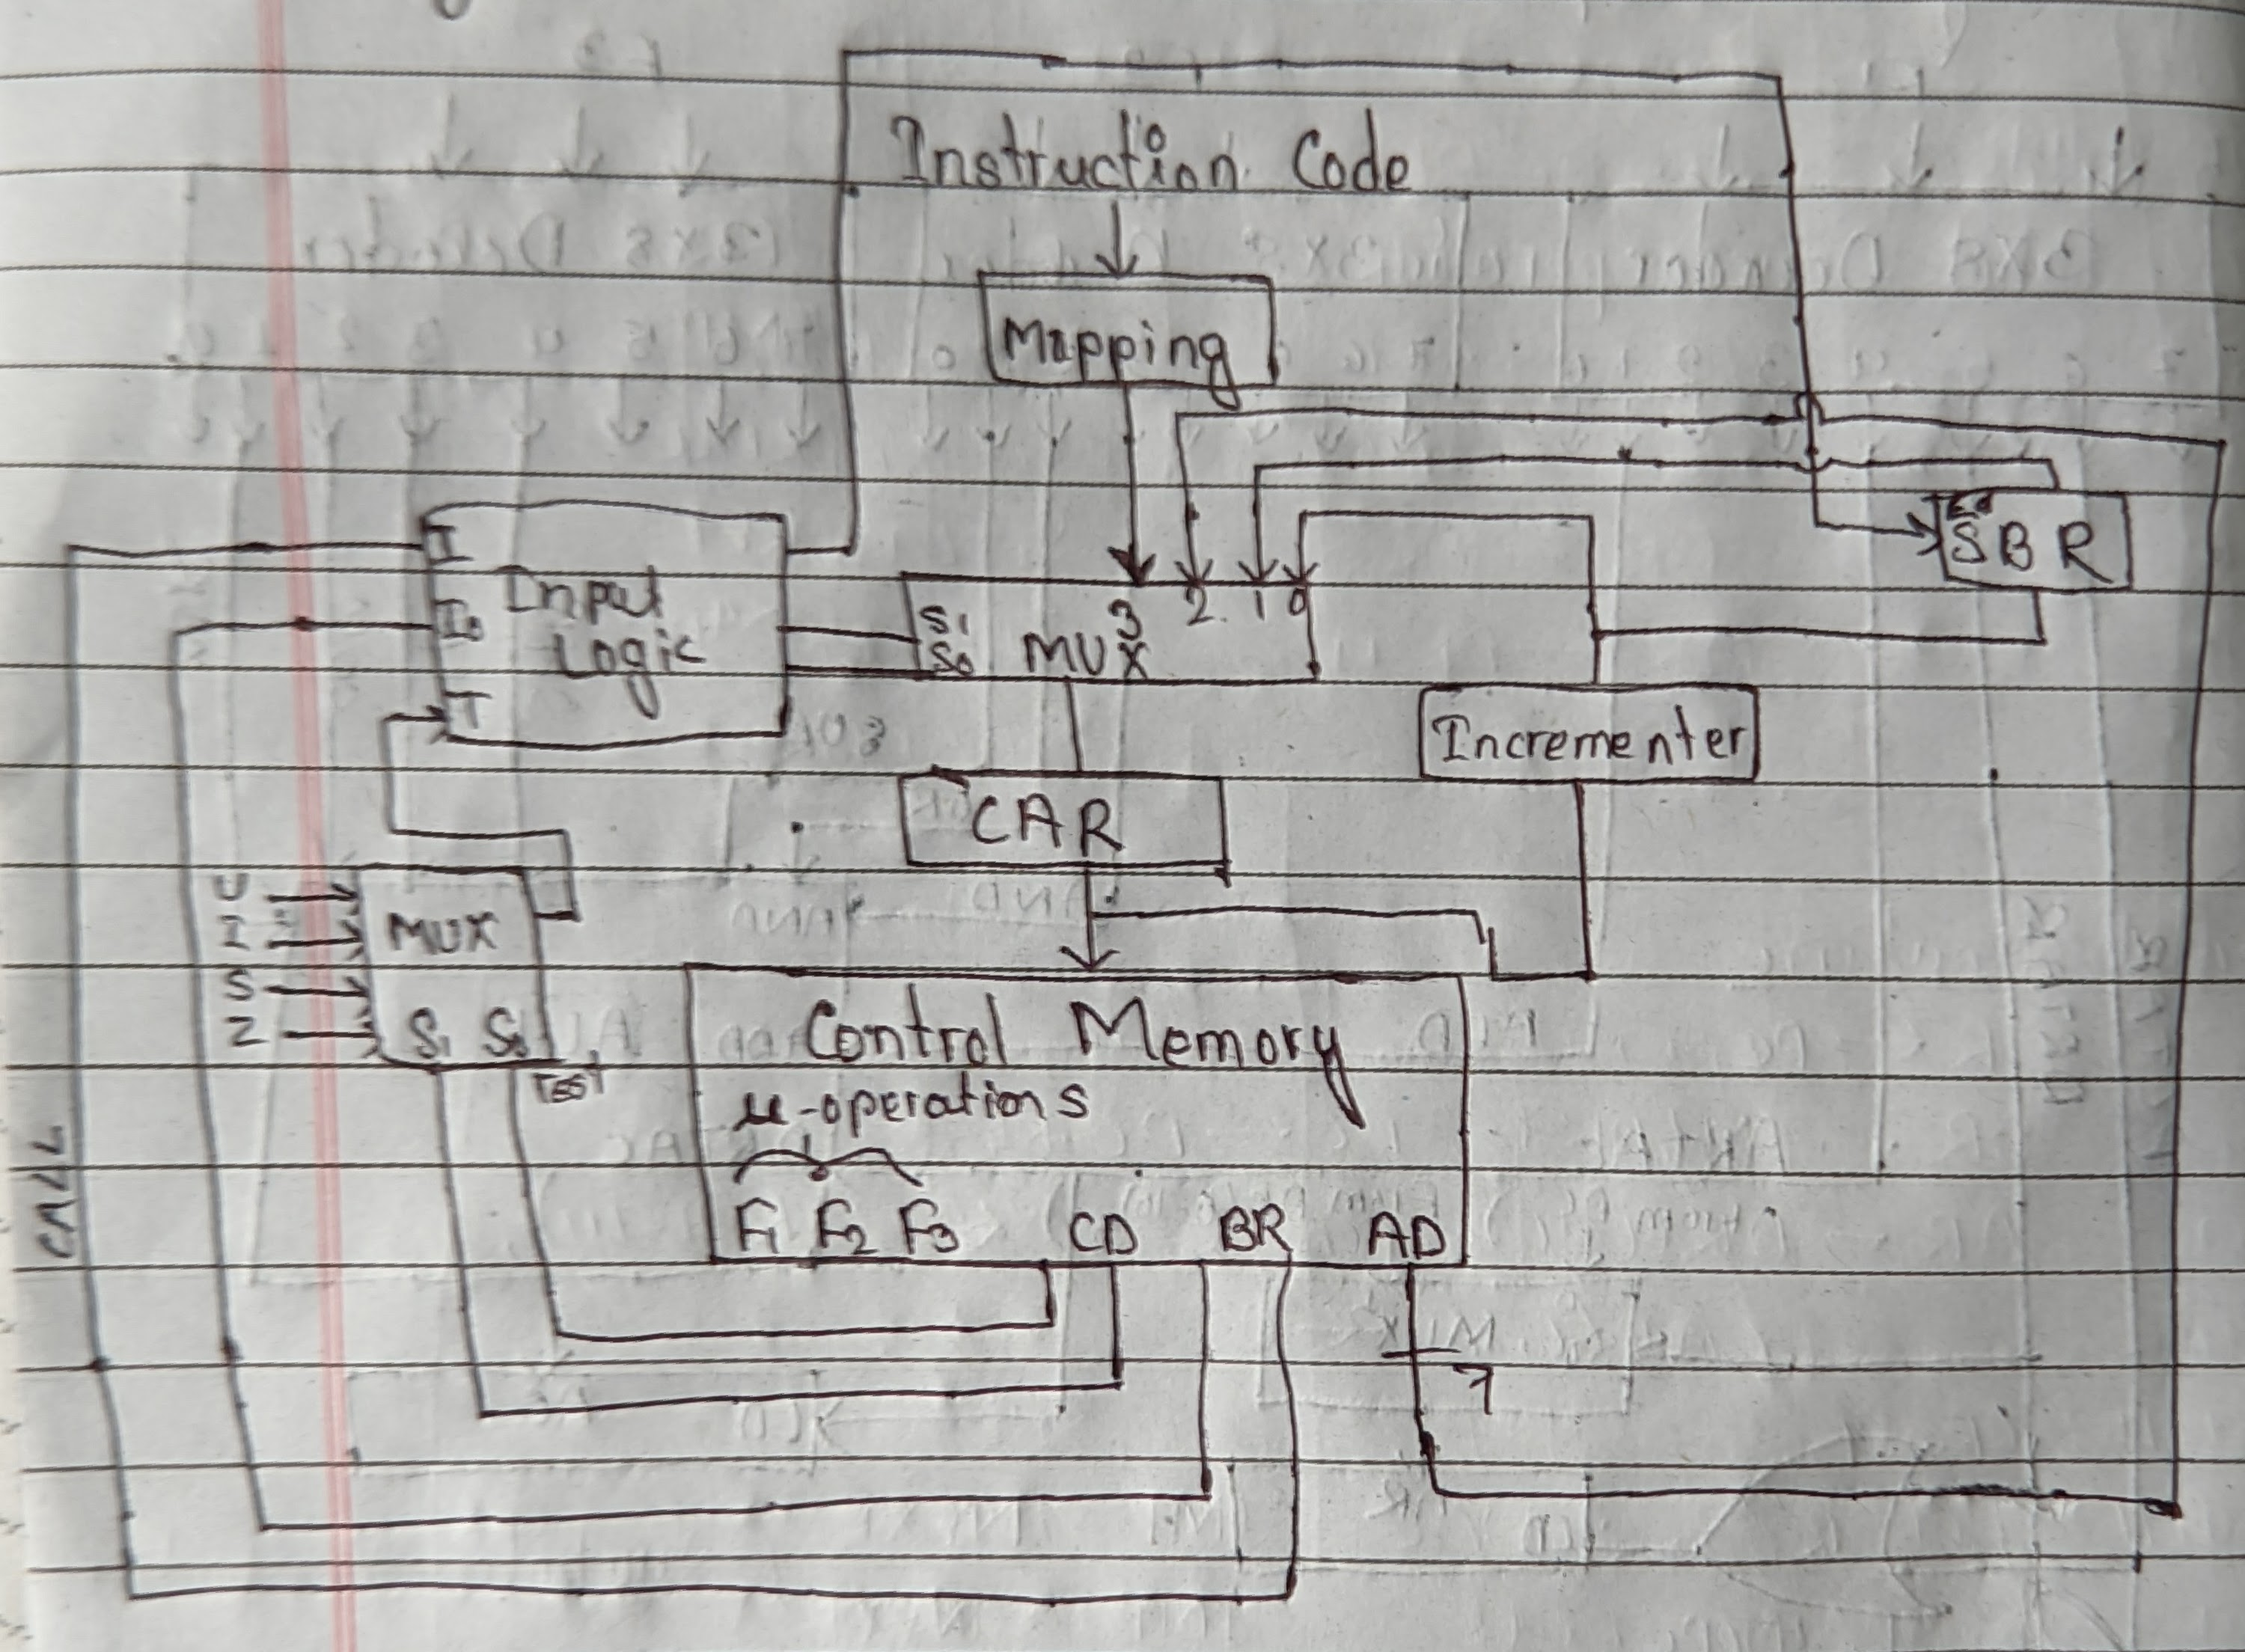 Instruction Code
Mapping
I
Input
Logic
I₀
T
S₁
S₀
MUX
3 2 1 0
SBR
Incrementer
CAR
U
I
S
Z
MUX
S₁ S₀
TEST
Control Memory
μ-operations
F₁ F₂ F₃ CD BR AD
7
CALL